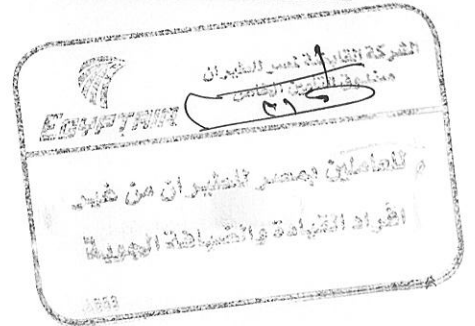 الشركة القابضة لمصر للطيران
صندوق التأمين الخاص
EGYPTAIR
للعاملين بمصر للطيران من غير
أفراد القيادة والضيافة الجوية